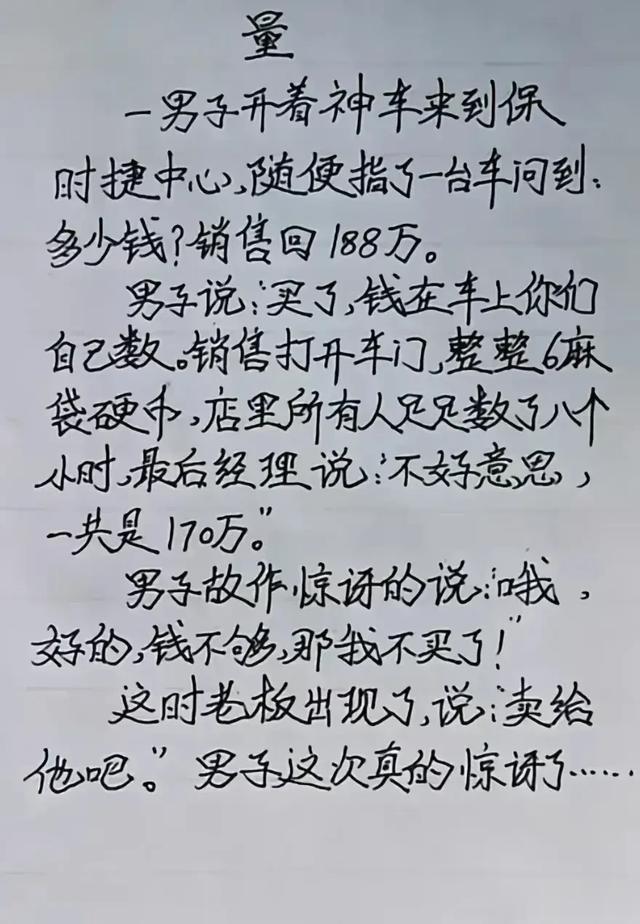 量
一男子开着神车来到保
时捷中心,随便指了一台车问到:
多少钱?销售回188万。
男子说:“买了,钱在车上你们
自己数。销售打开车门,整整6麻
袋硬币,店里所有人足足数了八个
小时,最后经理说:“不好意思,
一共是170万。”
男子故作惊讶的说:“哦,
好的,钱不够,那我不买了!”
这时老板出现了,说:“卖给
他吧。”男子这次真的惊讶了……